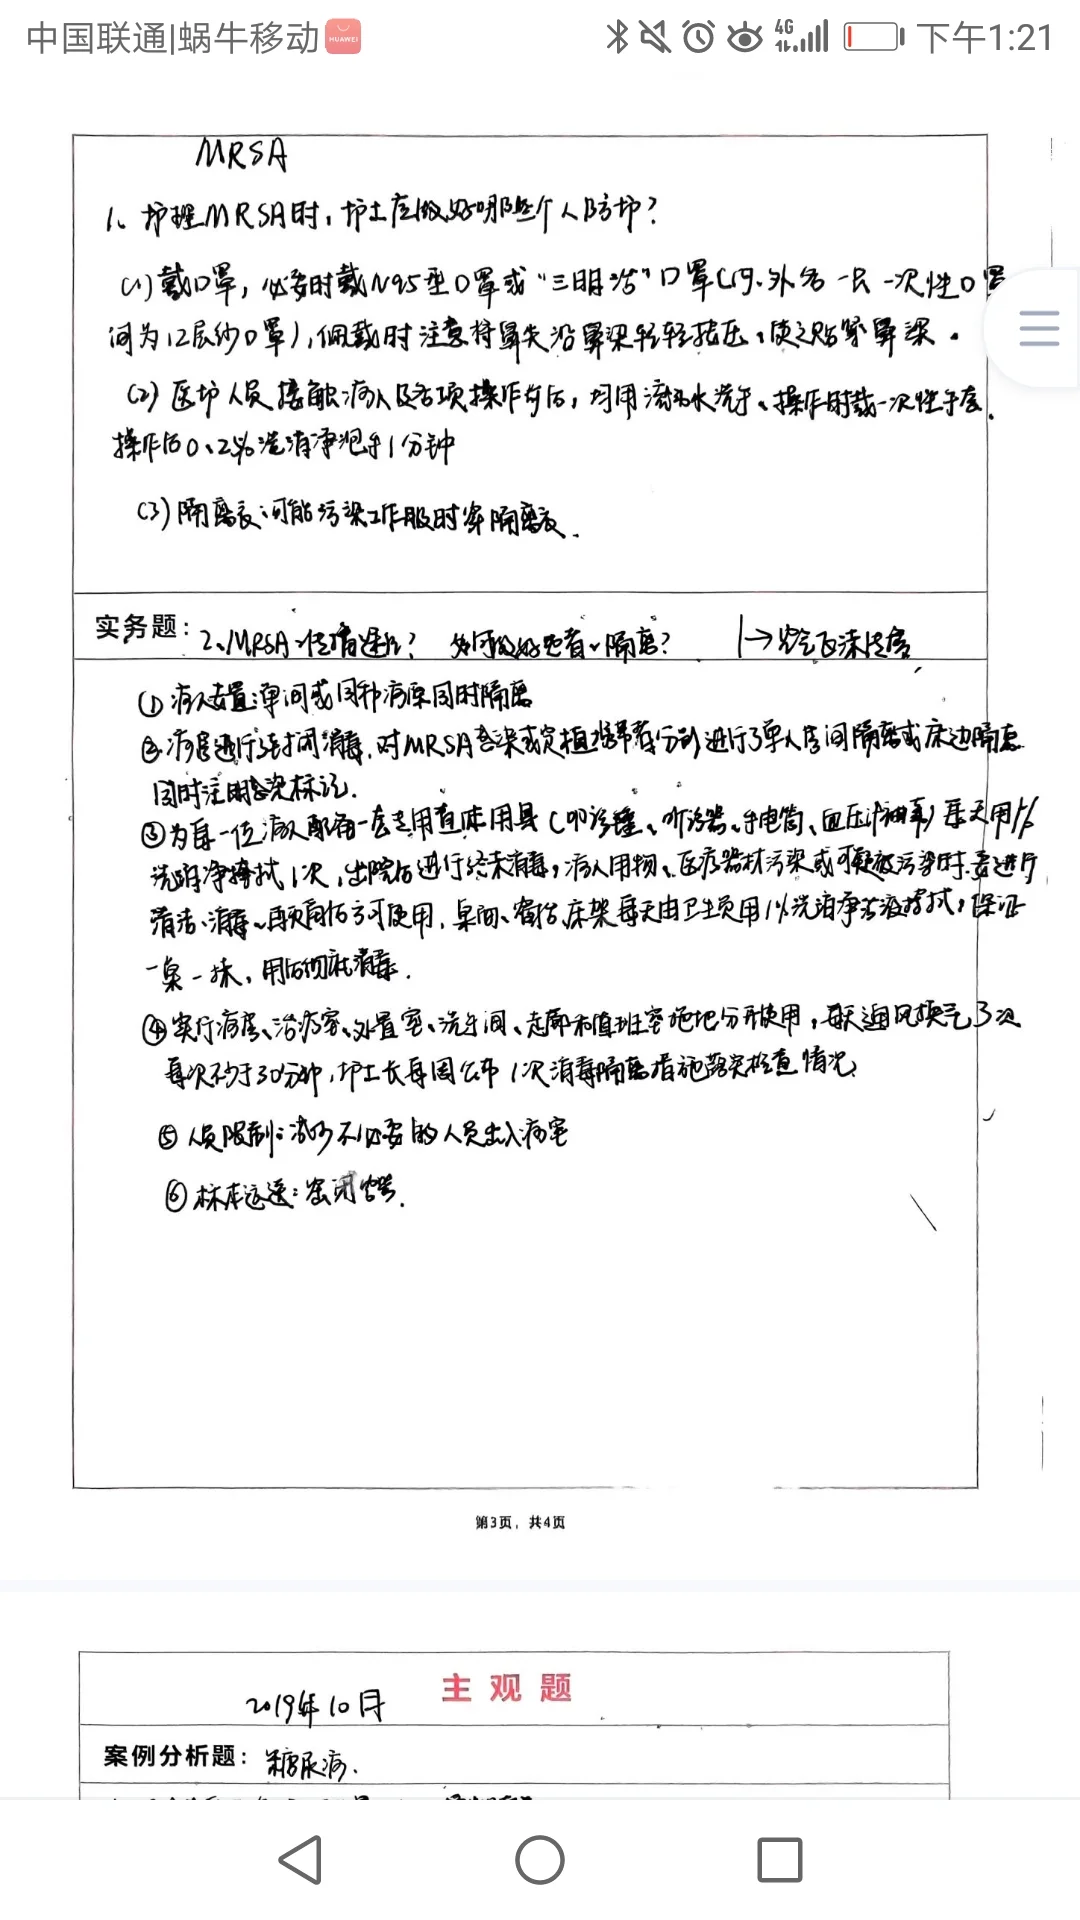 中国联通|蜗牛移动
HUAWEI
4G
下午1:21
MRSA
1、护理MRSA时,护士应做好哪些个人防护?
(1)戴口罩,必要时戴N95型口罩或“三明治”口罩(内、外各一只一次性口罩
间为12层纱口罩),佩戴时注意将鼻夹沿鼻梁轻轻按压,使之贴紧鼻梁。
(2)医护人员接触病人及各项操作前后,均用流动水洗手、操作时戴一次性手套,
操作后0.2%洗消净泡手1分钟
(3)隔离衣:可能污染工作服时穿隔离衣.
实务题:
2、MRSA 如何做好患者隔离?
①病人安置:单间或同种病原同时隔离
②病房进行封闭消毒,对MRSA感染或定植携带者分别进行了单人房间隔离或床边隔离
同时注明感染标记.
③为每一位病人配备一套专用查体用具(叩诊锤、听诊器、手电筒、血压计袖带)每天用1%
洗消净擦拭1次,出院后进行终末消毒,病人用物、医疗器材污染或可疑被污染时.要进行
清洁、消毒、 后方可使用.桌面、窗台、床架每天由卫生员用1%洗消净 液擦拭,保证
一桌一抹,用后彻底消毒.
④实行病房、治疗室、处置室、洗手间、走廊和值班室拖把分开使用,每天通风换气3次
每次不少于30分钟,护士长每周公布1次消毒隔离措施落实检查情况
⑤人员限制:减少不必要的人员出入病室
⑥标本运送:密闭容器.
第3页,共4页
主观题
2019年10月
案例分析题:糖尿病.